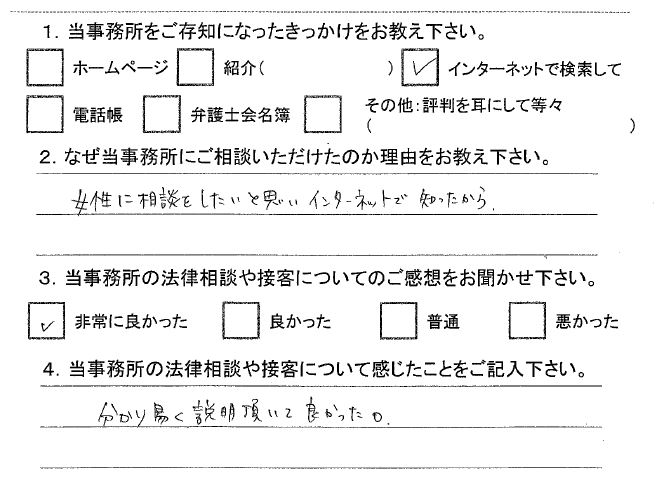 1．当事務所をご存知になったきっかけをお教え下さい。
ホームページ 紹介（ ） ✓ インターネットで検索して
電話帳 弁護士会名簿 その他：評判を耳にして等々
（ ）
2．なぜ当事務所にご相談いただけたのか理由をお教え下さい。
女性に相談をしたいと思いインターネットで知ったから.
3．当事務所の法律相談や接客についてのご感想をお聞かせ下さい。
✓ 非常に良かった 良かった 普通 悪かった
4．当事務所の法律相談や接客について感じたことをご記入下さい。
分かり易く説明頂いて良かった。